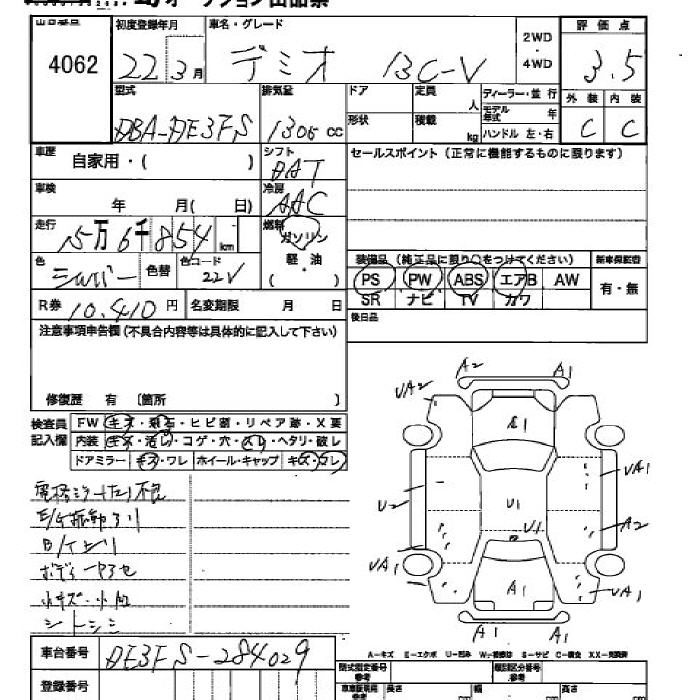 オークション出品票
出品番号 4062
初度登録年月 22 3月
車名・グレード デミオ 13C-V
2WD・4WD
評価点 3.5
型式 DBA-DE3FS
排気量 1300 cc
ドア 定員 人
形状 積載 kg
ディーラー・並行
モデル年式 年
ハンドル 左・右
外装 内装
C C
車歴 自家用・( )
シフト
セールスポイント (正常に機能するものに限ります)
車検 年 月( 日)
冷房 AAC
走行 15万6千854 km
燃料 ガソリン
軽・油
( )
色 シルバー 色替
色コード 22V
装備品 (純正品に限り○をつけてください)
新車保証書
PS PW ABS エアB AW
SR ナビ TV カワ
有・無
R券 10,410円 名変期限 月 日
後日品
注意事項申告欄(不具合内容等は具体的に記入して下さい)
修復歴 有 〔箇所 〕
検査員記入欄
FW キズ・飛石・ヒビ割・リペア跡・X要
内装 キズ・汚レ・コゲ・穴・スレ・ヘタリ・破レ
ドアミラー キズ・ワレ ホイール・キャップ キズ・ワレ
電格ミラー 不良
E/G振動
ボディー
小キズ・小凹
シートシミ
A2 A1
UA2
A1
UA1
U2
U1
U1
A2
UA1
A1
UA1
A1 A1
A…キズ E…エクボ U…凹み W…補修跡 S…サビ C…腐食 XX…交換済
車台番号 DE3FS-284029
登録番号
型式指定番号 参考
類別区分番号 参考
長さ 幅 高さ